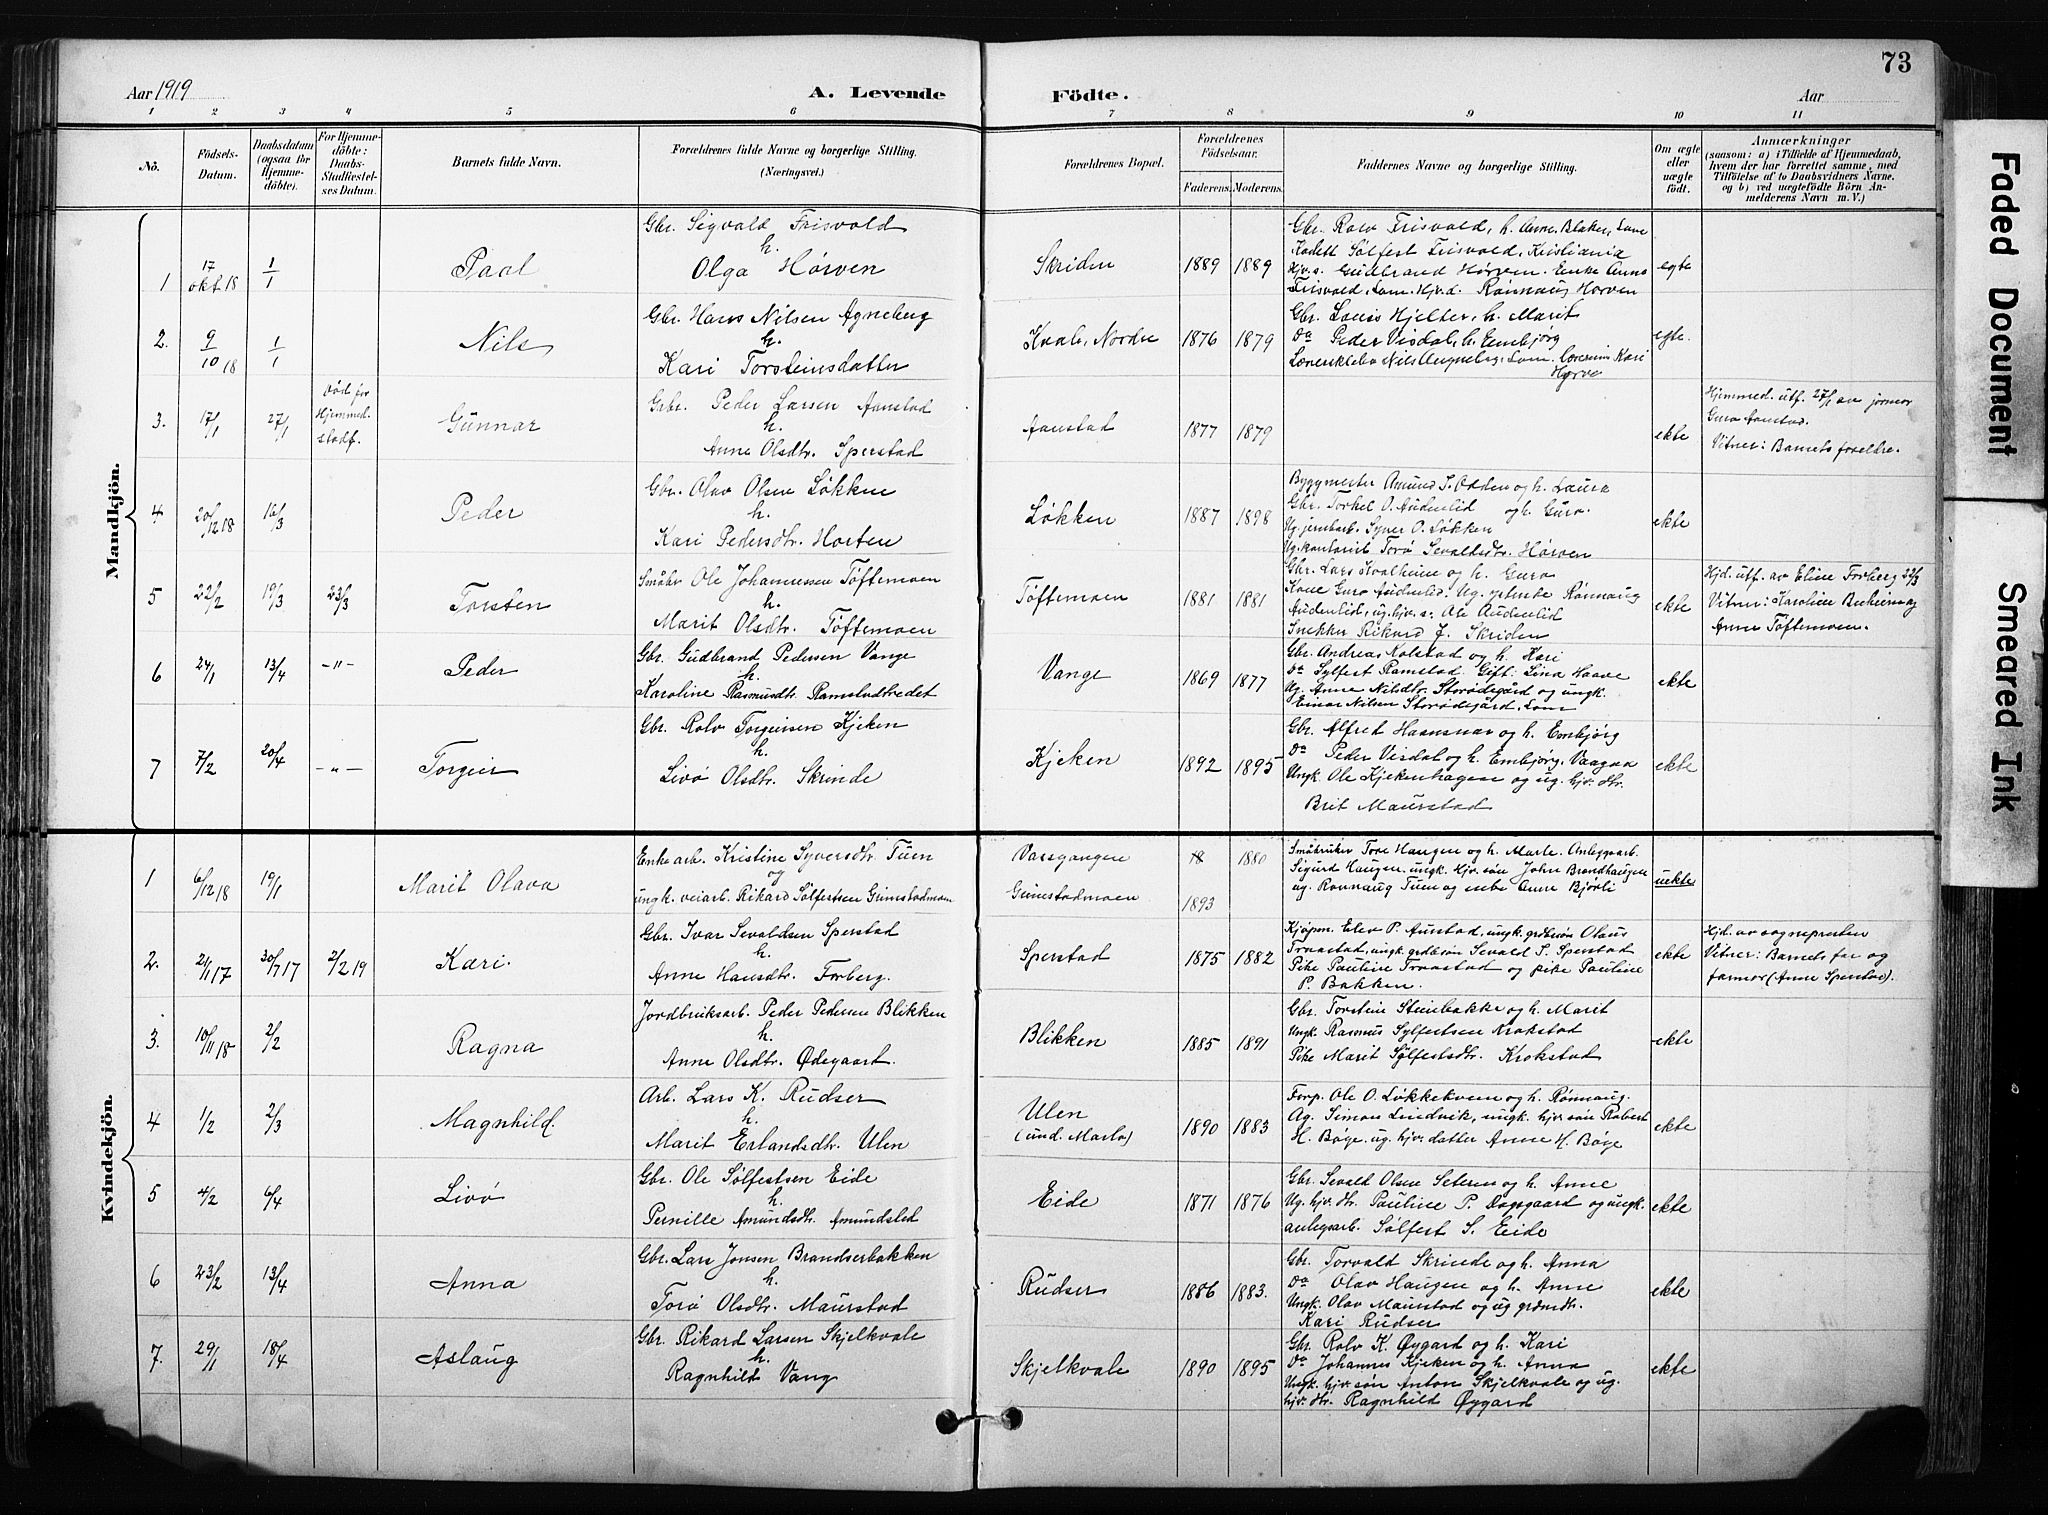 73
Aar 1919
A. Levende Födte.
Aar
1 2 3 4 5 6 7 8 9 10 11
Nö.
Födsels-Datum.
Daabsdatum (ogsaa for Hjemme-döbte).
For Hjemme-döbte: Daabs-Stadfæstel-ses Datum.
Barnets fulde Navn.
Forældrenes fulde Navne og borgerlige Stilling. (Næringsvei.)
Forældrenes Bopæl.
Forældrenes Födselsaar.
Faderens. Moderens.
Faddernes Navne og borgerlige Stilling.
Om ægte eller uægte födt.
Anmærkninger
(saasom: a) i Tilfælde af Hjemmedaab, hvem der har forrettet samme, med Tilföielse af to Daabsvidners Navne. og b) ved uægtefödte Börn An-melderens Navn m. V.)
Mandkjön.
1 17 okt. 18 1/1 Paal
Gbr. Sigvald Frisvold
h.
Olga Hørven
Skriden 1889 1889
Gbr. Rolv Frisvold, h. Anne, Blaker, Lom
Kadett Sølfest Frisvold, Kristiania
Hjv.s. Gudbrand Hørven. Enke Anna
Frisvold, Lom. Hjv.d. Rønnaug Horven
egte
2. 9/10 18 1/1 Nils
Gbr. Hans Nilsen Agneberg
h.
Kari Torsteinsdatter
Kvale, Nordre 1876 1879
Gbr. Louis Hjelter, h. Marit
Do Peder Visdal, h. Embjørg
Nils Lom. Kari
egte.
3. 17/1 27/1 Død før Hjemmed. stadf. Gunnar
Gbr. Peder Larsen Aanstad
h.
Anne Olsdtr. Sperstad
Aanstad 1877 1879
ekte
Hjemmed. utf. 27/1 av jormor
Guro Aanstad.
Vitner: Barnets foreldre.
4 20/12 18 16/3 Peder
Gbr. Olav Olsen Løkken
h.
Kari Pedersdtr. Horten
Løkken 1887 1898
Byggmester Amund S. Odden og h. Laura
Gbr. Torkel O. Audenlid og h. Guro.
Ug. jernbarb. Syver O. Løkken
Ug. Torø Sevaltsdtr. Hørven
ekte
5 22/2 19/3 23/3 Torsten
Småbr Ole Johannessen Tøftemoen
h.
Marit Olsdtr. Tøftemoen
Tøftemoen 1881 1881
Gbr. Lars Kvalheim og h. Guro
Kone Guro Audenlid. Ug. Rønnaug
Audenlid, ug. hjv. s: Ole Audenlid
Snekker Rikard J. Skriden
ekte
Hjd. utf. av Eline Forberg 22/3
Vitner: Karoline og
Anne Tøftemoen.
6 24/1 13/4 -"- Peder
Gbr. Gudbrand Pedersen Vange
h.
Karoline Rasmusdtr. Ramstadtredet
Vange 1869 1877
Gbr. Andreas Kolstad og h. Kari
Do Sylfest Ramstad. Gift. Lina Haave
Ug. Anne Nilsdtr. Storødegård og ungk.
Einar Nilsen Storødegård, Lom
ekte
7 7/2 20/4 -"- Torgeir
Gbr. Rolv Torgeirsen Kjeken
h.
Livø Olsdtr. Skrinde
Kjeken 1892 1895
Gbr. Alfred Haansnar og h. Embjørg
Do Peder Visdal og h. Embjørg, Vaagaa
Ungk. Ole Kjekenhagen og ug. hjv. dtr.
Brit Maurstad
ekte
Kvindekjön.
1 6/12 18 19/1 Marit Olava
Enke arb. Kristine Syversdtr. Tuen
og
ungk. veiarb. Rikard Sølfestsen Grimstadmoen
Varsgangen 18 1880
Grimstadmoen 1893
Småbruker Tore Haugen og h. Marte. Anleggsarb.
Sigurd Haugen. ungk. Hjv. søn John Brandhaugen
ug. Rønnaug Tuen og enke Anne Bjorli
uekte
2. 21/11 17 30/7 17 2/2 19 Kari.
Gbr. Ivar Sevaldsen Sperstad
h.
Anne Hansdtr. Forberg.
Sperstad 1875 1882
Kjøpm. Elev P. Aanstad, ungk. grdbrsøn Olaus
Traastad, ungk. grdbrsøn Sevald S. Sperstad
Pike Pauline Traastad og pike Pauline
P. Bakken.
ekte
Hjd. av sognepresten
Vitner: Barnets far og
farmor (Anne Sperstad).
3. 10/11 18 2/2 Ragna
Jordbruksarb. Peder Pedersen Blikken
h.
Anne Olsdtr. Ødegaard.
Blikken 1885 1891
Gbr. Torstein Steinbakke og h. Marit
Ungk. Rasmus Sylfestsen Krokstad
Pike Marit Sylfestsdtr. Krokstad
ekte
4 1/2 2/3 Magnhild.
Arb. Lars K. Rudser
h.
Marit Erlandsdtr. Ulen
Ulen (und. Marlo) 1890 1883
Forp. Ole O. Løkkekveen og h. Rønnaug.
Ag. Simon Lindvik, ungk. hjv. søn Robert
H. Bøye. ug. hjv. datter Anne H. Bøye
ekte
5 4/2 6/4 Livø
Gbr. Ole Sølfestsen Eide
h.
Pernille Amundsdtr. Amundsled
Eide 1871 1876
Gbr. Sevald Olsen Seteren og h. Anne
Ug. hjv. dtr. Pauline P. Dagsgaard og ungk.
anlegsarb. Sølfest S. Eide
ekte
6 23/2 13/4 Anna
Gbr. Lars Jonsen Brandserbakken
h.
Torø Olsdtr. Maurstad
Rudser 1886 1883.
Gbr. Torvald Skrinde og h. Anna
Do Olav Haugen og h. Anne
Ungk. Olav Maurstad og ug grdmdtr.
Kari Rudser
ekte
7. 29/1 18/4 Aslaug
Gbr. Rikard Larsen Skjelkvale
h.
Ragnhild Vang
Skjelkvale 1890 1895
Gbr. Rolv K. Øygard og h. Kari
Do Johannes Kjeken og h. Anna
Ungk. hjv. søn Anton Skjelkvale og ug.
hjv. dtr. Ragnhild Øygard
ekte
Faded Document
Smeared Ink